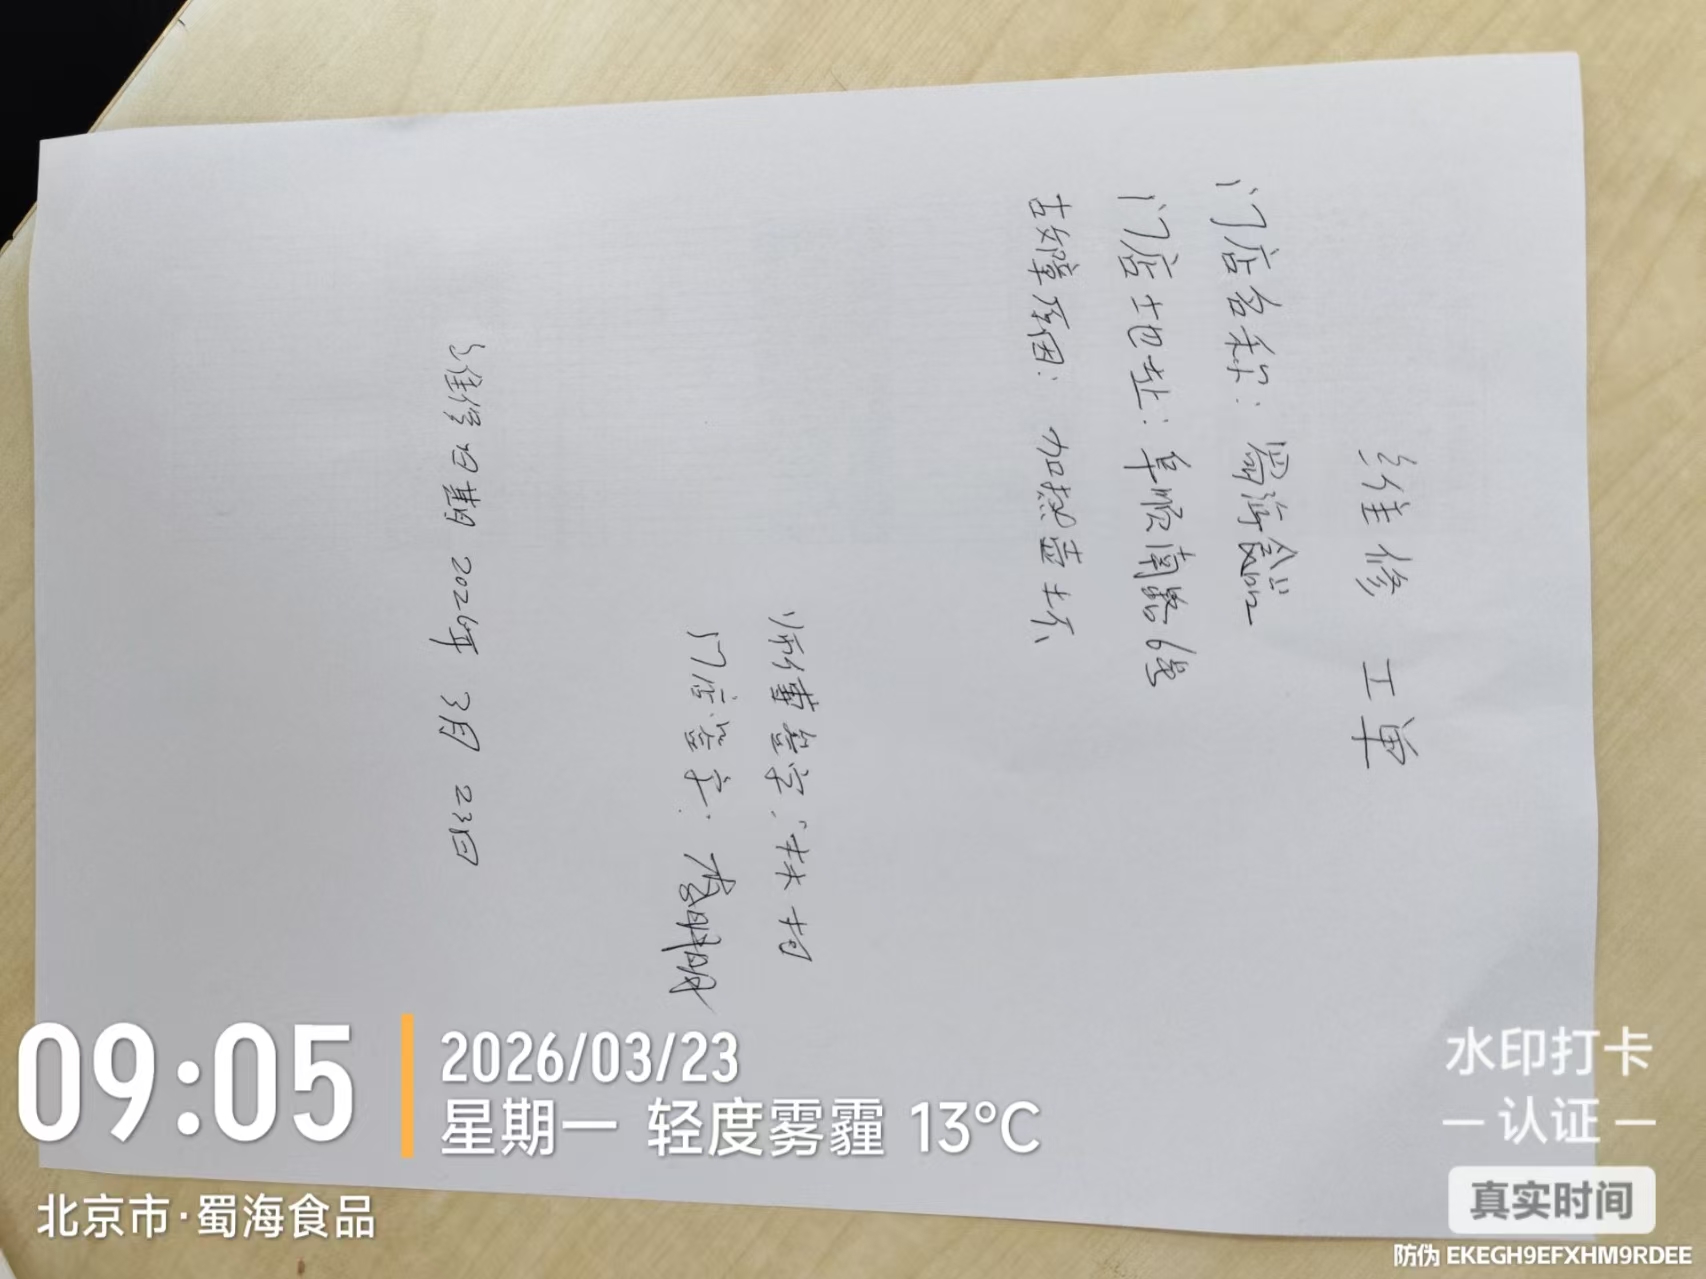 维修 工单
门店名称：蜀海食品
门店地址：阜顺南路6号
故障原因：加热壶坏
师傅签字：
门店签字：
维修日期 2026年 3月 23日
09:05
2026/03/23
星期一 轻度雾霾 13°C
北京市·蜀海食品
水印打卡
认证
真实时间
防伪 EKEGH9EFXHM9RDEE